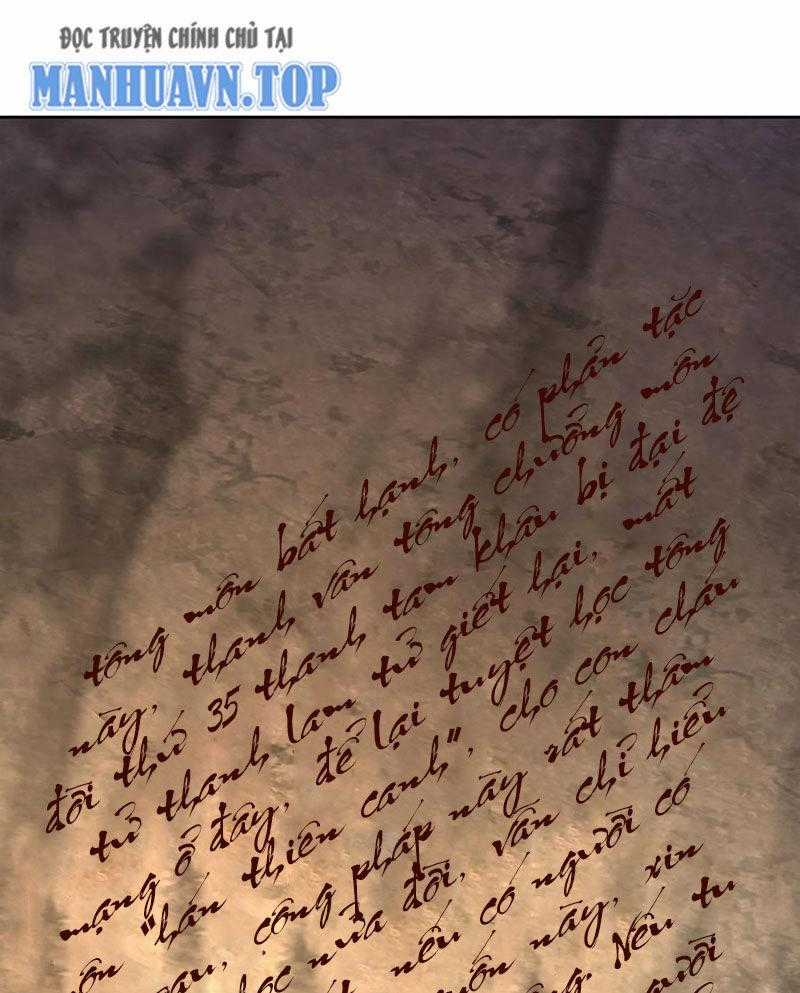 ĐỌC TRUYỆN CHÍNH CHỦ TẠI
MANHUAVN.TOP
tông môn bất hạnh, có phản tặc
này, thanh vân tông chưởng môn
đời thứ 35 thanh tam khâu bị đại đệ
tử thanh lam tử giết hại, mất
mạng ở đây, để lại tuyệt học tông
môn "hán thiên canh", cho con cháu
sau, công pháp này rất thâm
học nửa đời, vẫn chỉ hiểu
nếu có người có
môn này, xin
Nếu tu